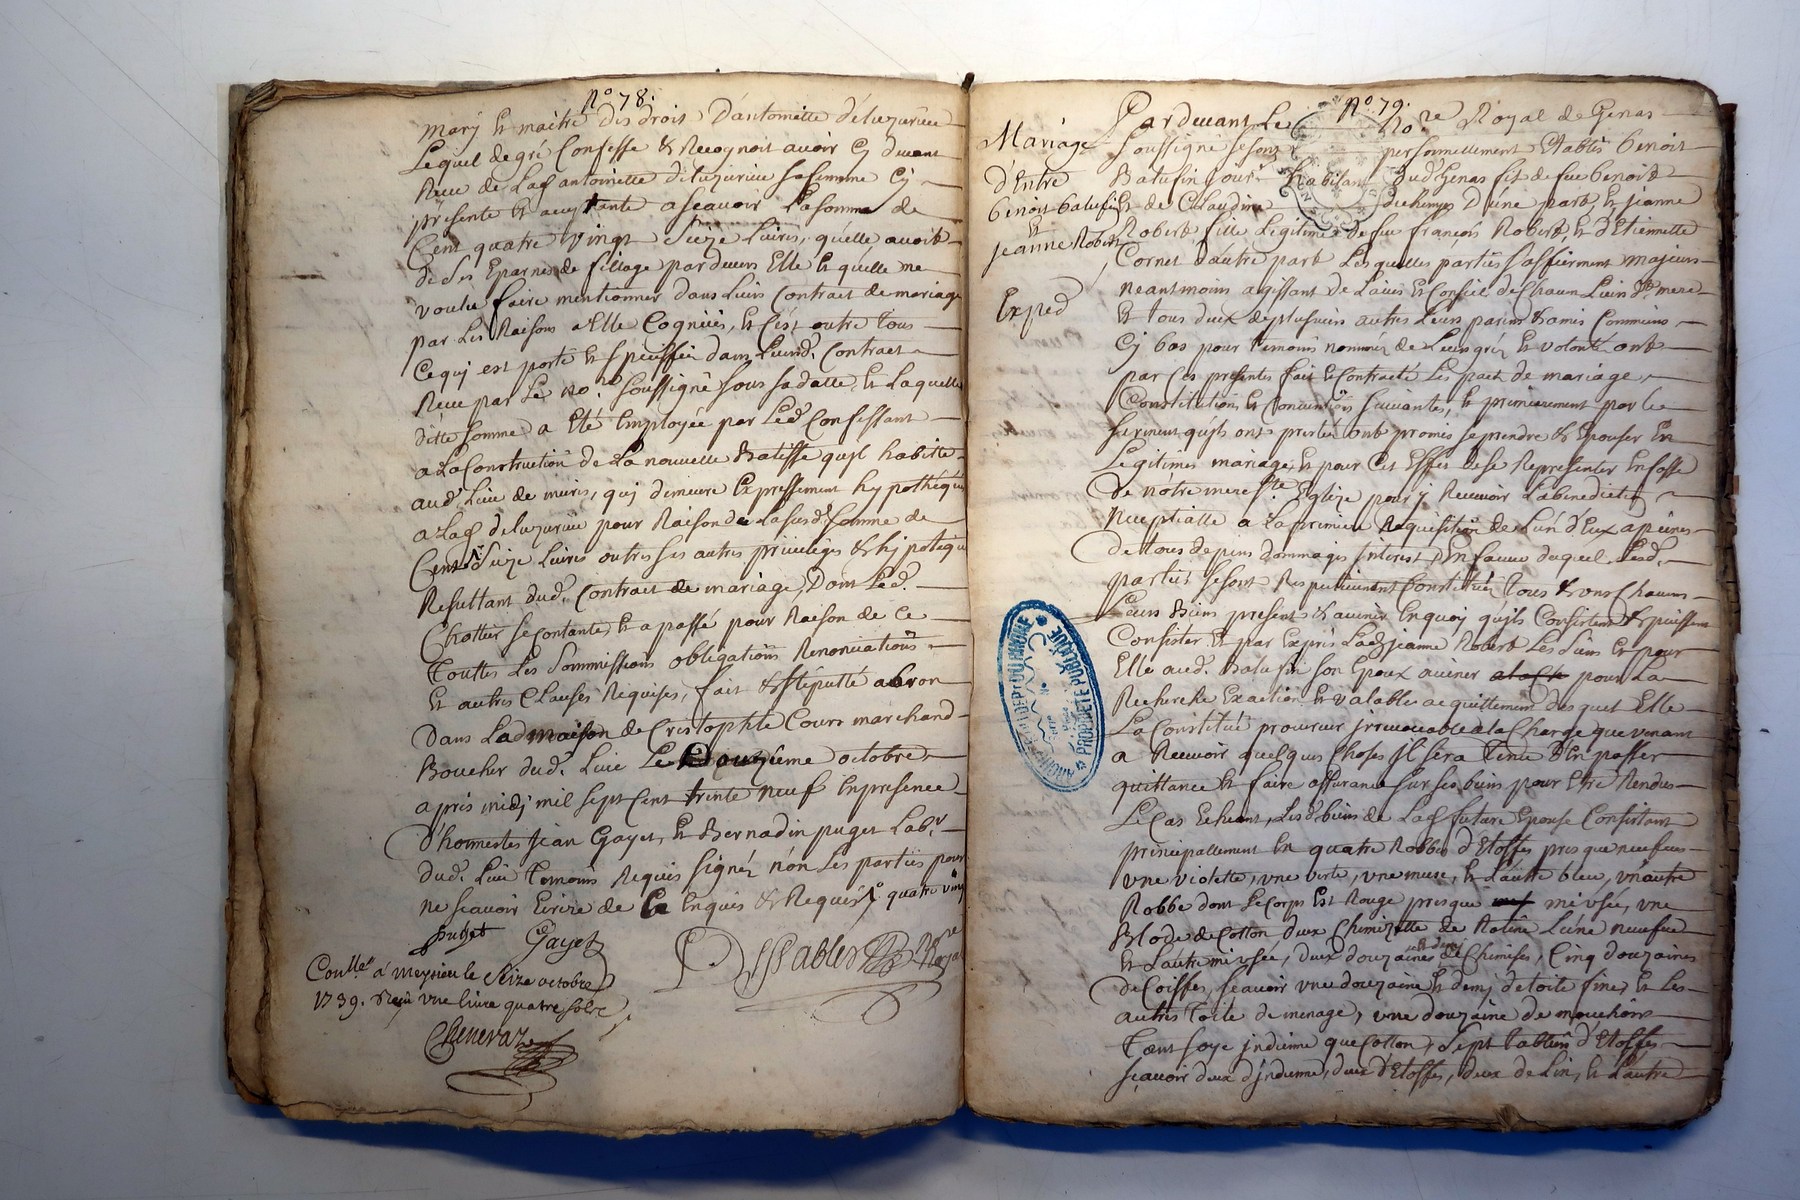 N° 78.
mary & maitre des drois d'antoinette
Lequel de gré Confesse & Recognoit avoir Cy devant
Receu de Lad antoinette sa femme Cy
presente & acceptante a scavoir La somme de
Cent quatre vingt Seize Livres, qu'elle avoit
de ses Eparnes de fillage pardevers Elle & qu'elle ne
voulu faire mentionner dans Leurs Contrait de mariage
par Les Raisons a Elle Cognües, & C'est outre tous
Ce qui est porté & speciffié dans Leurd. Contract
Receu par Le no.re soussigné sous sa datte, & Laquelle
ditte somme a Eté Employée par Led Confessant
a La Construction de La nouvelle Batisse qu'il habitte
aud. Lieu de
a Lad pour Raison de La susd. somme de
Cent Seize Livres outre ses autres privileges & hipoteque
Resultant dud. Contrait de mariage, Dont Led.
se Contante, & a passé pour Raison de Ce
Touttes Les Sommissions obligations Renonciations
Et autres Clauses Requises, fait & stiputté a bron
Dans Lad maison de Cristophle Cours marchand
Boucher dud. Lieu Le Douzieme octobre
apres midy mil sept Cent trinte neuf En presence
d'honnestes Jean Gayet, & Bernadin puget Lab.r
dud. Lieu Temoins Requis signés non Les parties pour
ne scavoir Ecrire de Ce Enquis & Requis / quatre vingt
puget Gayet
Coull.é a Meysieu le Seize octobre
1739. Reçu vne livre quatre sols
Chenevaz
N° 79.
Mariage
d'Entre
Benoit Batufin
&
Jeanne Robert
Exped
Pardevant Le No.re Royal de Genas
soussigné se sont personnellement Etablis Benoit
Batufin habitant dud Genas fils de feu Benoit
& de Claudine d'une part, & Jeanne
Robert fille Legitime de feu françois Robert, & d'Etiennette
Cornet d'autre part Lesquelles parties majeurs
neantmoins agissant de L'avis & Conseil de Chacun Leurs d. mere
& tous deux de plusieurs autres Leurs parens & amis Communs
Cy bas pour temoins nommés de Leurs gréz & volonté ont
par Ces presentes fait & Contracté Les pact de mariage
Constitutions & Conventions suivantes, & premierement par Le
serement qu'ils ont presté ont promis se prendre & Epouser En
Legitimes mariage, & pour Cet Effet de se Representer En fasse
de nôtre mere s.te Eglize pour y Recevoir La benediction
nuptialle a La premiere Requisition de L'un d'Eux a peines
de tous depens dommages Interest, En faveur duquel Lesd.
parties se sont Respectivement Constitués Tous & uns Chacuns
Leurs Biens present & avenir En quoy qu'ils Consistent & puissent
Consister & par Exprés Lad Jeanne Robert Les siens & pour
Elle aud. Batufin son Epoux avenir pour La
Recherche Exaction & valables acquittement desquel Elle
La Constitué procureur irrevocable a La Charge que venant
a Recevoir quelques Choses Il sera Tenu d'En passer
quittance & faire assurance sur ses biens pour Etre Rendues
Le Cas Echeant, Lesd biens de Lad future Epouse Consistant
principallement En quatre Robbes d'Etoffes presque neufves
vne violette, vne verte, vne muse, & L'autre bleu, vn autre
Robbe dont Le Corps Est Rouge presque mi vsée, vne
Blode de Cotton deux Chimizette de Ratine L'une neufve
& L'autre mi vsée, deux douzaines & demy de Chimises, Cinq douzaines
de Coiffes, scavoir vne douzaine & demy de toile fine, & Les
autres Toile de menage, vne douzaine de mouchoirs
Tant soye indienne que Cotton, Sept tabliers d'Etoffes
scavoir deux d'indienne, deux d'Etoffes, deux de Lin, & L'autre
ARCHIVES DU DÉP.T DU RHONE
PROPRIÉTÉ PUBLIQUE